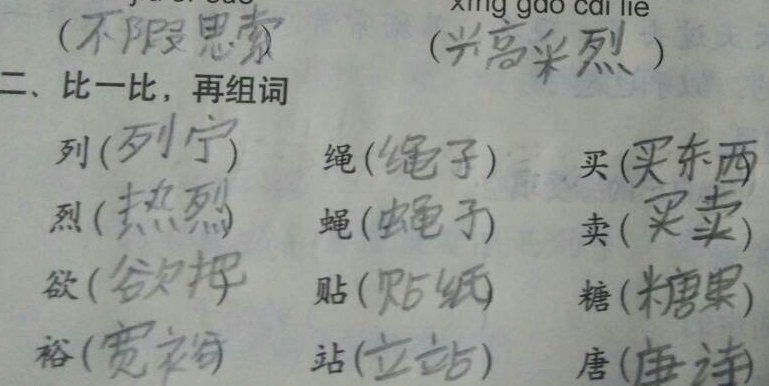 xīng gāo cǎi liè
(不暇思索) (兴高采烈)
二、比一比，再组词
列(列宁) 绳(绳子) 买(买东西)
烈(热烈) 蝇(蝇子) 卖(买卖)
欲(欲押) 贴(贴纸) 糖(糖果)
裕(宽裕) 站(立站) 唐(唐诗)